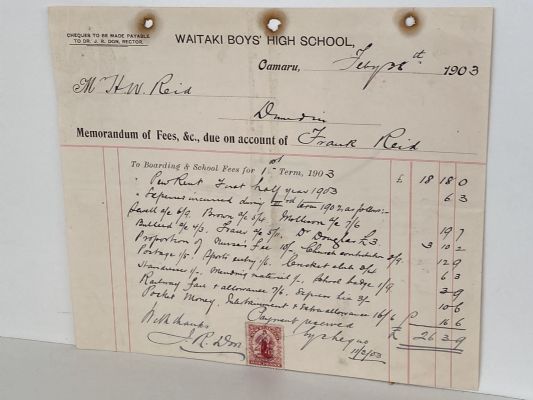 CHEQUES TO BE MADE PAYABLE
TO DR. J. R. DON, RECTOR.
WAITAKI BOYS' HIGH SCHOOL,
Oamaru, Feby 26th 1903
Mr H.W. Reid
Dunedin
Memorandum of Fees, &c., due on account of Frank Reid
To Boarding & School Fees for 1st Term, 1903 £ 18 18 0
" Pew Rent First half year 1903 6 3
" Expenses incurred during term 1902, as follows:-
a/c 6/9. Brown a/c 5/ a/c 7/6 19 7
a/c 4/3. Fraser a/c 5/11. Dr Douglas £3. 3 10 2
Proportion of Nurse's Fee 10/. Church contribution 2/9 12 9
Postage 1/5. Sports entry 1/6. Cricket club 6 3
1/. Mending material 1/. School badge 1/9 3 9
Railway fare & allowance 7/6. Express 3/ 10 6
Pocket Money, Entertainment & Extra allowance 16/6 16 6
£ 26 3 9
Payment received
by cheque
11/3/03
With thanks
J. R. Don